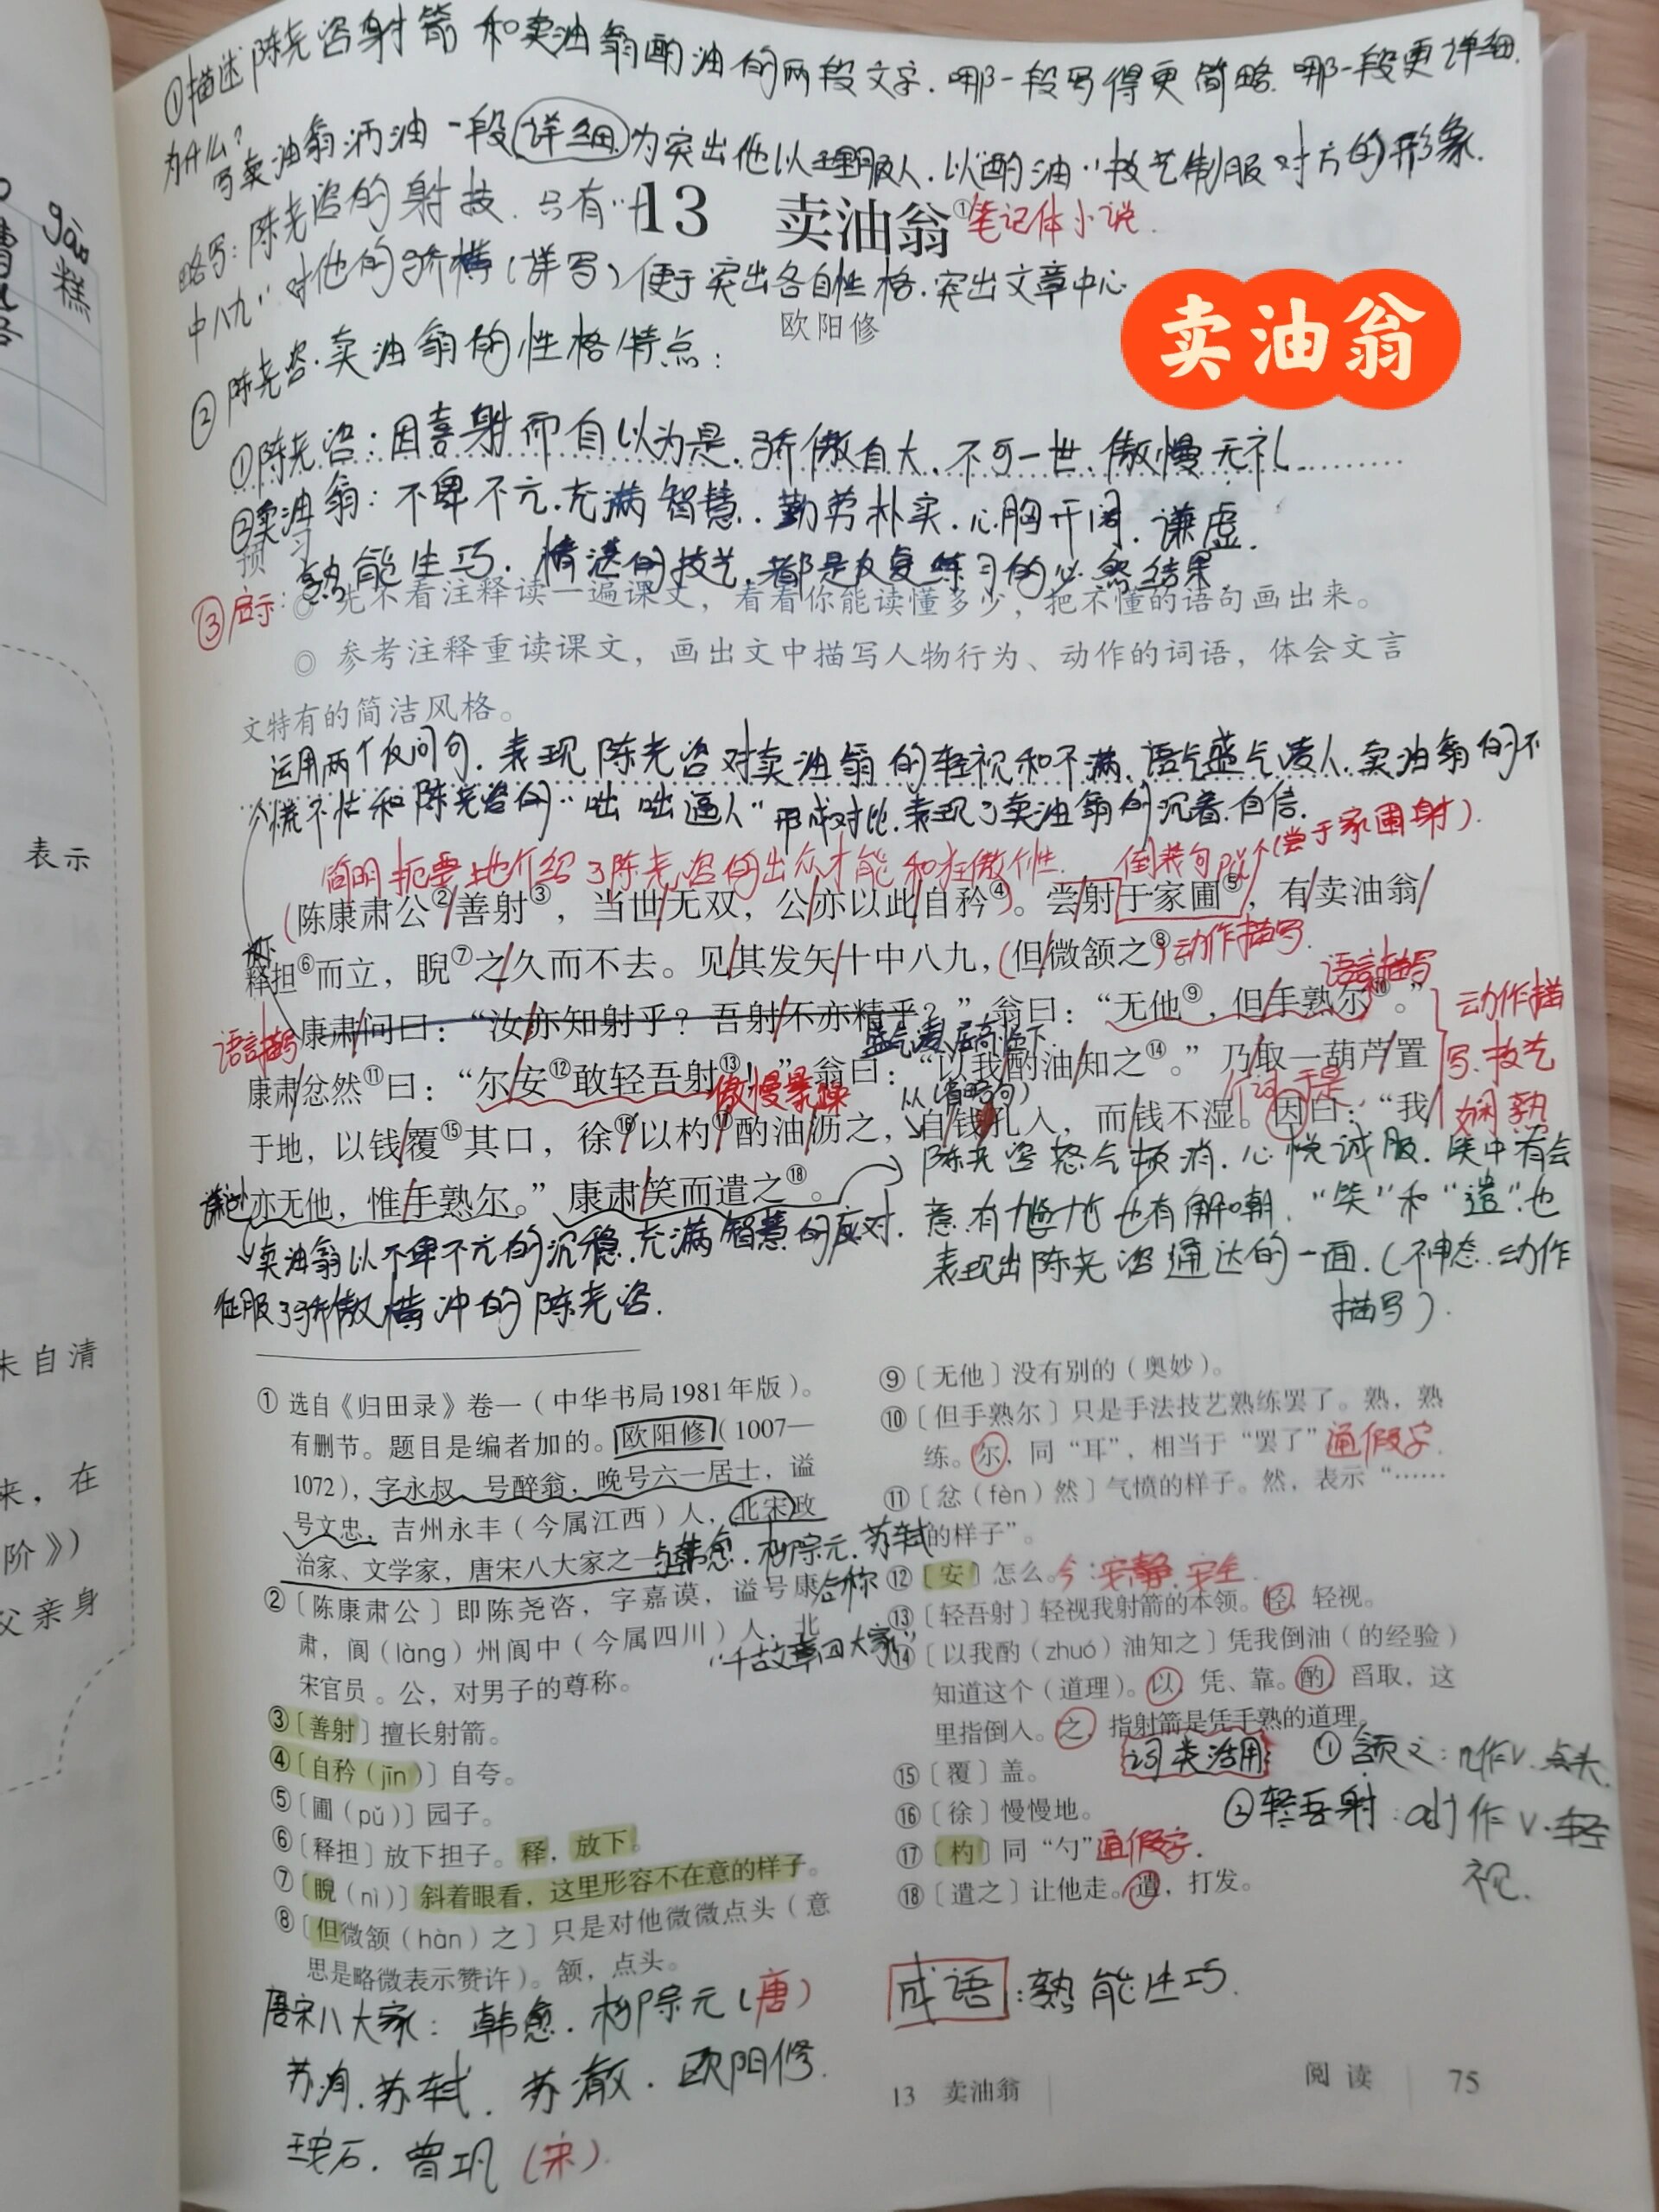 ①描述陈尧咨射箭和卖油翁酌油的两段文字.哪一段写得更简略.哪一段更详细.
为什么?
写卖油翁沥油一段详细为突出他以理服人.以“酌油”技艺制服对方的形象.
略写:陈尧咨的射技.只有“十
13 卖油翁① 笔记体小说.
中八九”对他的骄横(详写)便于突出各自性格.突出文章中心
欧阳修
卖油翁
②陈尧咨.卖油翁的性格特点:
①陈尧咨:因喜射而自以为是.骄傲自大.不可一世.傲慢无礼
②卖油翁:不卑不亢.充满智慧.勤劳朴实.心胸开阔.谦虚.
预习
③启示:熟能生巧.精湛的技艺.都是反复练习的必然结果
◎ 先不看注释读一遍课文，看看你能读懂多少，把不懂的语句画出来。
◎ 参考注释重读课文，画出文中描写人物行为、动作的词语，体会文言
文特有的简洁风格。
运用两个反问句.表现陈尧咨对卖油翁的轻视和不满.语气盛气凌人.卖油翁的不
慌不忙和陈尧咨的“咄咄逼人”形成对比.表现了卖油翁的沉着.自信.
简明扼要地介绍了陈尧咨的出众才能和狂傲个性. 倒装句 (尝于家圃射).
(陈康肃公②善射③，当世无双，公亦以此自矜④。尝射于家圃⑤，有卖油翁
释担⑥而立，睨⑦之久而不去。见其发矢十中八九，(但微颔之⑧。动作描写.
语言描写
康肃问曰：“汝亦知射乎？吾射不亦精乎？”翁曰：“无他⑨，但手熟尔⑩。”
语言描写
动作描
写.技艺
娴熟
盛气凌人居高临下.
康肃忿然⑪曰：“尔安⑫敢轻吾射⑬！”翁曰：“以我酌油知之⑭。”乃取一葫芦置
傲慢暴躁
从(省略句)
介词于是
于地，以钱覆⑮其口，徐⑯以杓⑰酌油沥之，自钱孔入，而钱不湿。因曰：“我
亦无他，惟手熟尔。”康肃笑而遣之⑱。
陈尧咨怒气顿消.心悦诚服.笑中有会
意.有尴尬也有解嘲.“笑”和“遣”也
表现出陈尧咨通达的一面.(神态.动作
描写).
卖油翁以不卑不亢的沉稳.充满智慧的应对.
征服了骄傲横冲的陈尧咨.
① 选自《归田录》卷一（中华书局1981年版）。
有删节。题目是编者加的。欧阳修（1007—
1072），字永叔，号醉翁，晚号六一居士，谥
号文忠，吉州永丰（今属江西）人，北宋政
治家、文学家，唐宋八大家之一
与韩愈.柳宗元.苏轼
合称
“千古文章四大家”
②〔陈康肃公〕即陈尧咨，字嘉谟，谥号康
肃，阆（làng）州阆中（今属四川）人，北
宋官员。公，对男子的尊称。
③〔善射〕擅长射箭。
④〔自矜（jīn）〕自夸。
⑤〔圃（pǔ）〕园子。
⑥〔释担〕放下担子。释，放下。
⑦〔睨（nì）〕斜着眼看，这里形容不在意的样子。
⑧〔但微颔（hàn）之〕只是对他微微点头（意
思是略微表示赞许）。颔，点头。
唐宋八大家:韩愈.柳宗元(唐)
苏洵.苏轼.苏澈.欧阳修.
王安石.曾巩(宋).
⑨〔无他〕没有别的（奥妙）。
⑩〔但手熟尔〕只是手法技艺熟练罢了。熟，熟
练。尔，同“耳”，相当于“罢了” 通假字.
⑪〔忿（fèn）然〕气愤的样子。然，表示“……
的样子”。
⑫〔安〕怎么。今:安静.安生.
⑬〔轻吾射〕轻视我射箭的本领。轻，轻视。
⑭〔以我酌（zhuó）油知之〕凭我倒油（的经验）
知道这个（道理）。以，凭、靠。酌，舀取，这
里指倒入。之，指射箭是凭手熟的道理。
⑮〔覆〕盖。
⑯〔徐〕慢慢地。
⑰〔杓〕同“勺” 通假字.
⑱〔遣之〕让他走。遣，打发。
词类活用 ①颔之:n作v.点头.
②轻吾射:adj作v.轻
视.
成语:熟能生巧.
13 卖油翁
阅读 75
gāo
糕
表示
朱自清
来，在
阶》）
父亲身